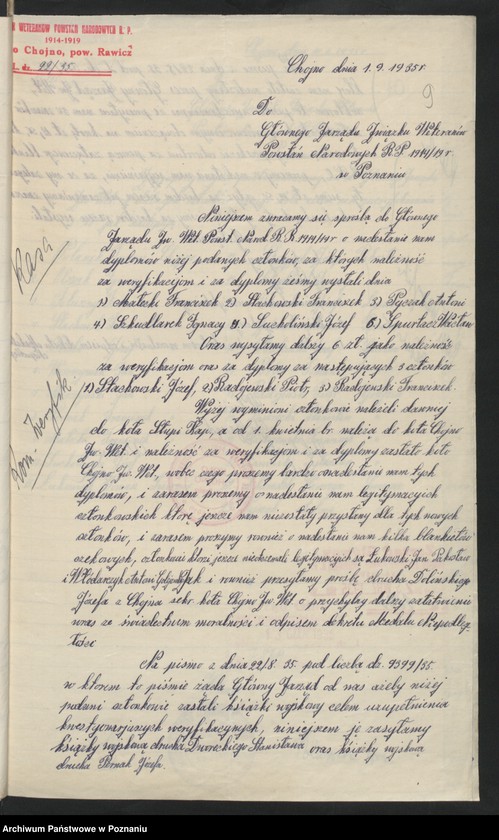 WETERANÓW POWSTAŃ NARODOWYCH R. P.
1914-1919
o Chojno, pow. Rawicz
L. dz. 99/35
Chojno dnia 1. 9. 1935 r.
9
Do
Głównego Zarządu Związku Weteranów
Powstań Narodowych R.P. 1914/19 r.
w Poznaniu
Niniejszem zwracamy się z prośbą do Głównego
Zarządu Zw. Wet. Powst. Narod. R.P. 1914/19 r o nadesłanie nam
dyplomów niżej podanych członków, za których należność
za weryfikacjom i za dyplomy żeśmy wysłali dnia
1) Matecki Franciszek 2) Stachowski Franciszek 3) Pyszak Antoni
4) Szkudlarek Ignacy 5) Sucholiński Józef 6) Gpurtacz Wacław
Oraz wysyłamy dalszy 6 zł. jako należność
za weryfikacjom oraz za dyplomy za następujących 3 członków
1) Stachowski Józef, 2) Radojewski Piotr, 3) Radojewski Franciszek.
Wyżej wymienieni członkowie należeli dawniej
do koła Słupi Kap., a od 1. kwietnia br. należą do koła Chojno
Zw. Wet. i należność za weryfikacjom i za dyplomy zastało koło
Chojno Zw. Wet., wobec czego prosimy bardzo o nadesłanie nam tych
dyplomów, i zarazem prosimy o nadesłanie nam legitymacyj
członkowskich które jeszcze nam niezostały przysłany dla tych nowych
członków, i zarazem prosimy również o nadesłanie nam kilka blankietów
czekowych, członkowie którzi jeszcze nieotrzymali legitymacyj są Łukowski Jan, Pakosław
i Włodarczyk Antoni Golejewko i również przesyłamy prośbę druha Doleńskiego
Józefa z Chojna sekr. koła Chojno Zw. Wet. o przychylny dalszy załatwienie
wraz ze świadectwem moralności i odpisem dekretu Medalu Niepodleg-
łości
Na pismo z dnia 22/8. 35. pod liczbą dz. 9399/35
w którem to piśmie żąda Główny Zarząd od nas ażeby niżej
podani członkowie zastali książki wojskowy celem uzupełnienia
kwestjonarjuszych weryfikacyjnych, niniejszem je zasyłamy
książkę wojskową druha Dworeckiego Stanisława oraz książkę wojskową
druha Pernak Józefa.
Kasa
Kom. Weryfik
Archiwum Państwowe w Poznaniu